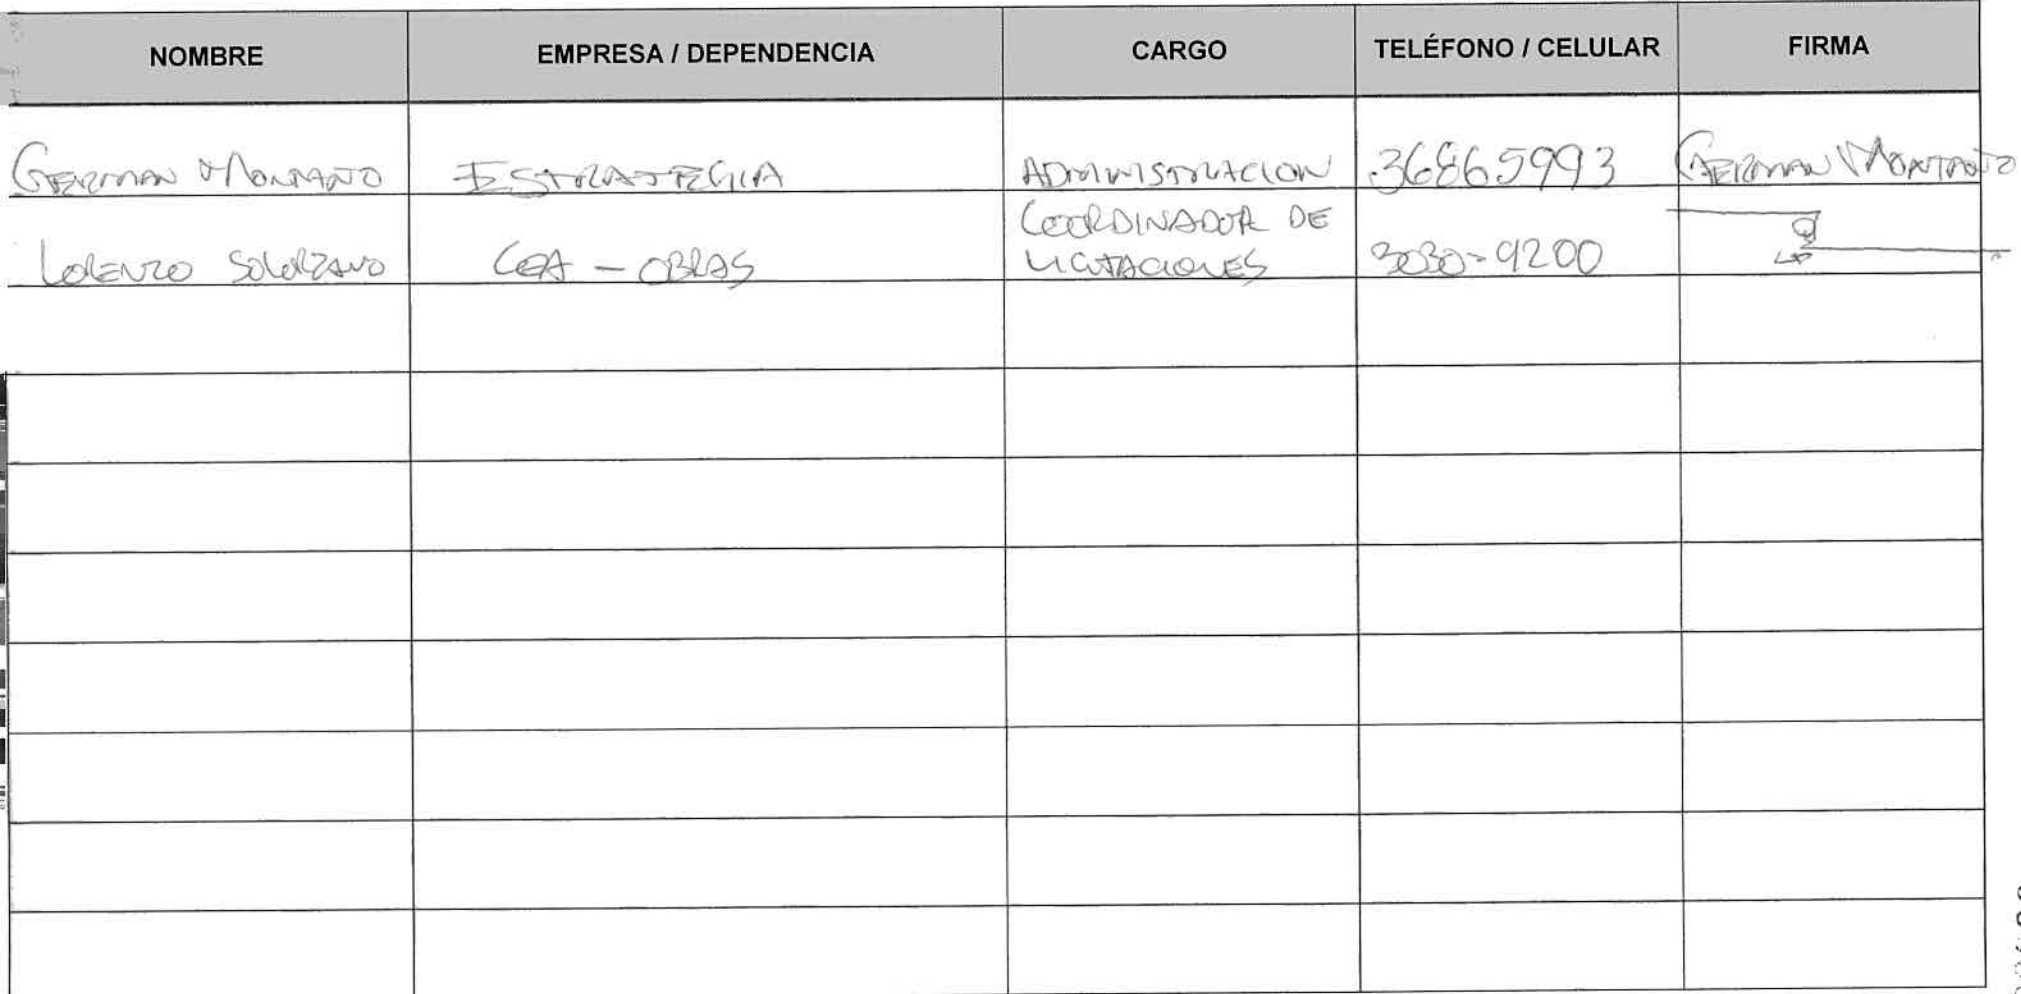 NOMBRE EMPRESA / DEPENDENCIA CARGO TELÉFONO / CELULAR FIRMA
GERMAN MONTAÑO ESTRATEGIA ADMINISTRACION 36865993 GERMAN MONTAÑO
COORDINADOR DE
LORENZO SOLORZANO CEA - OBRAS LICITACIONES 3030-9200